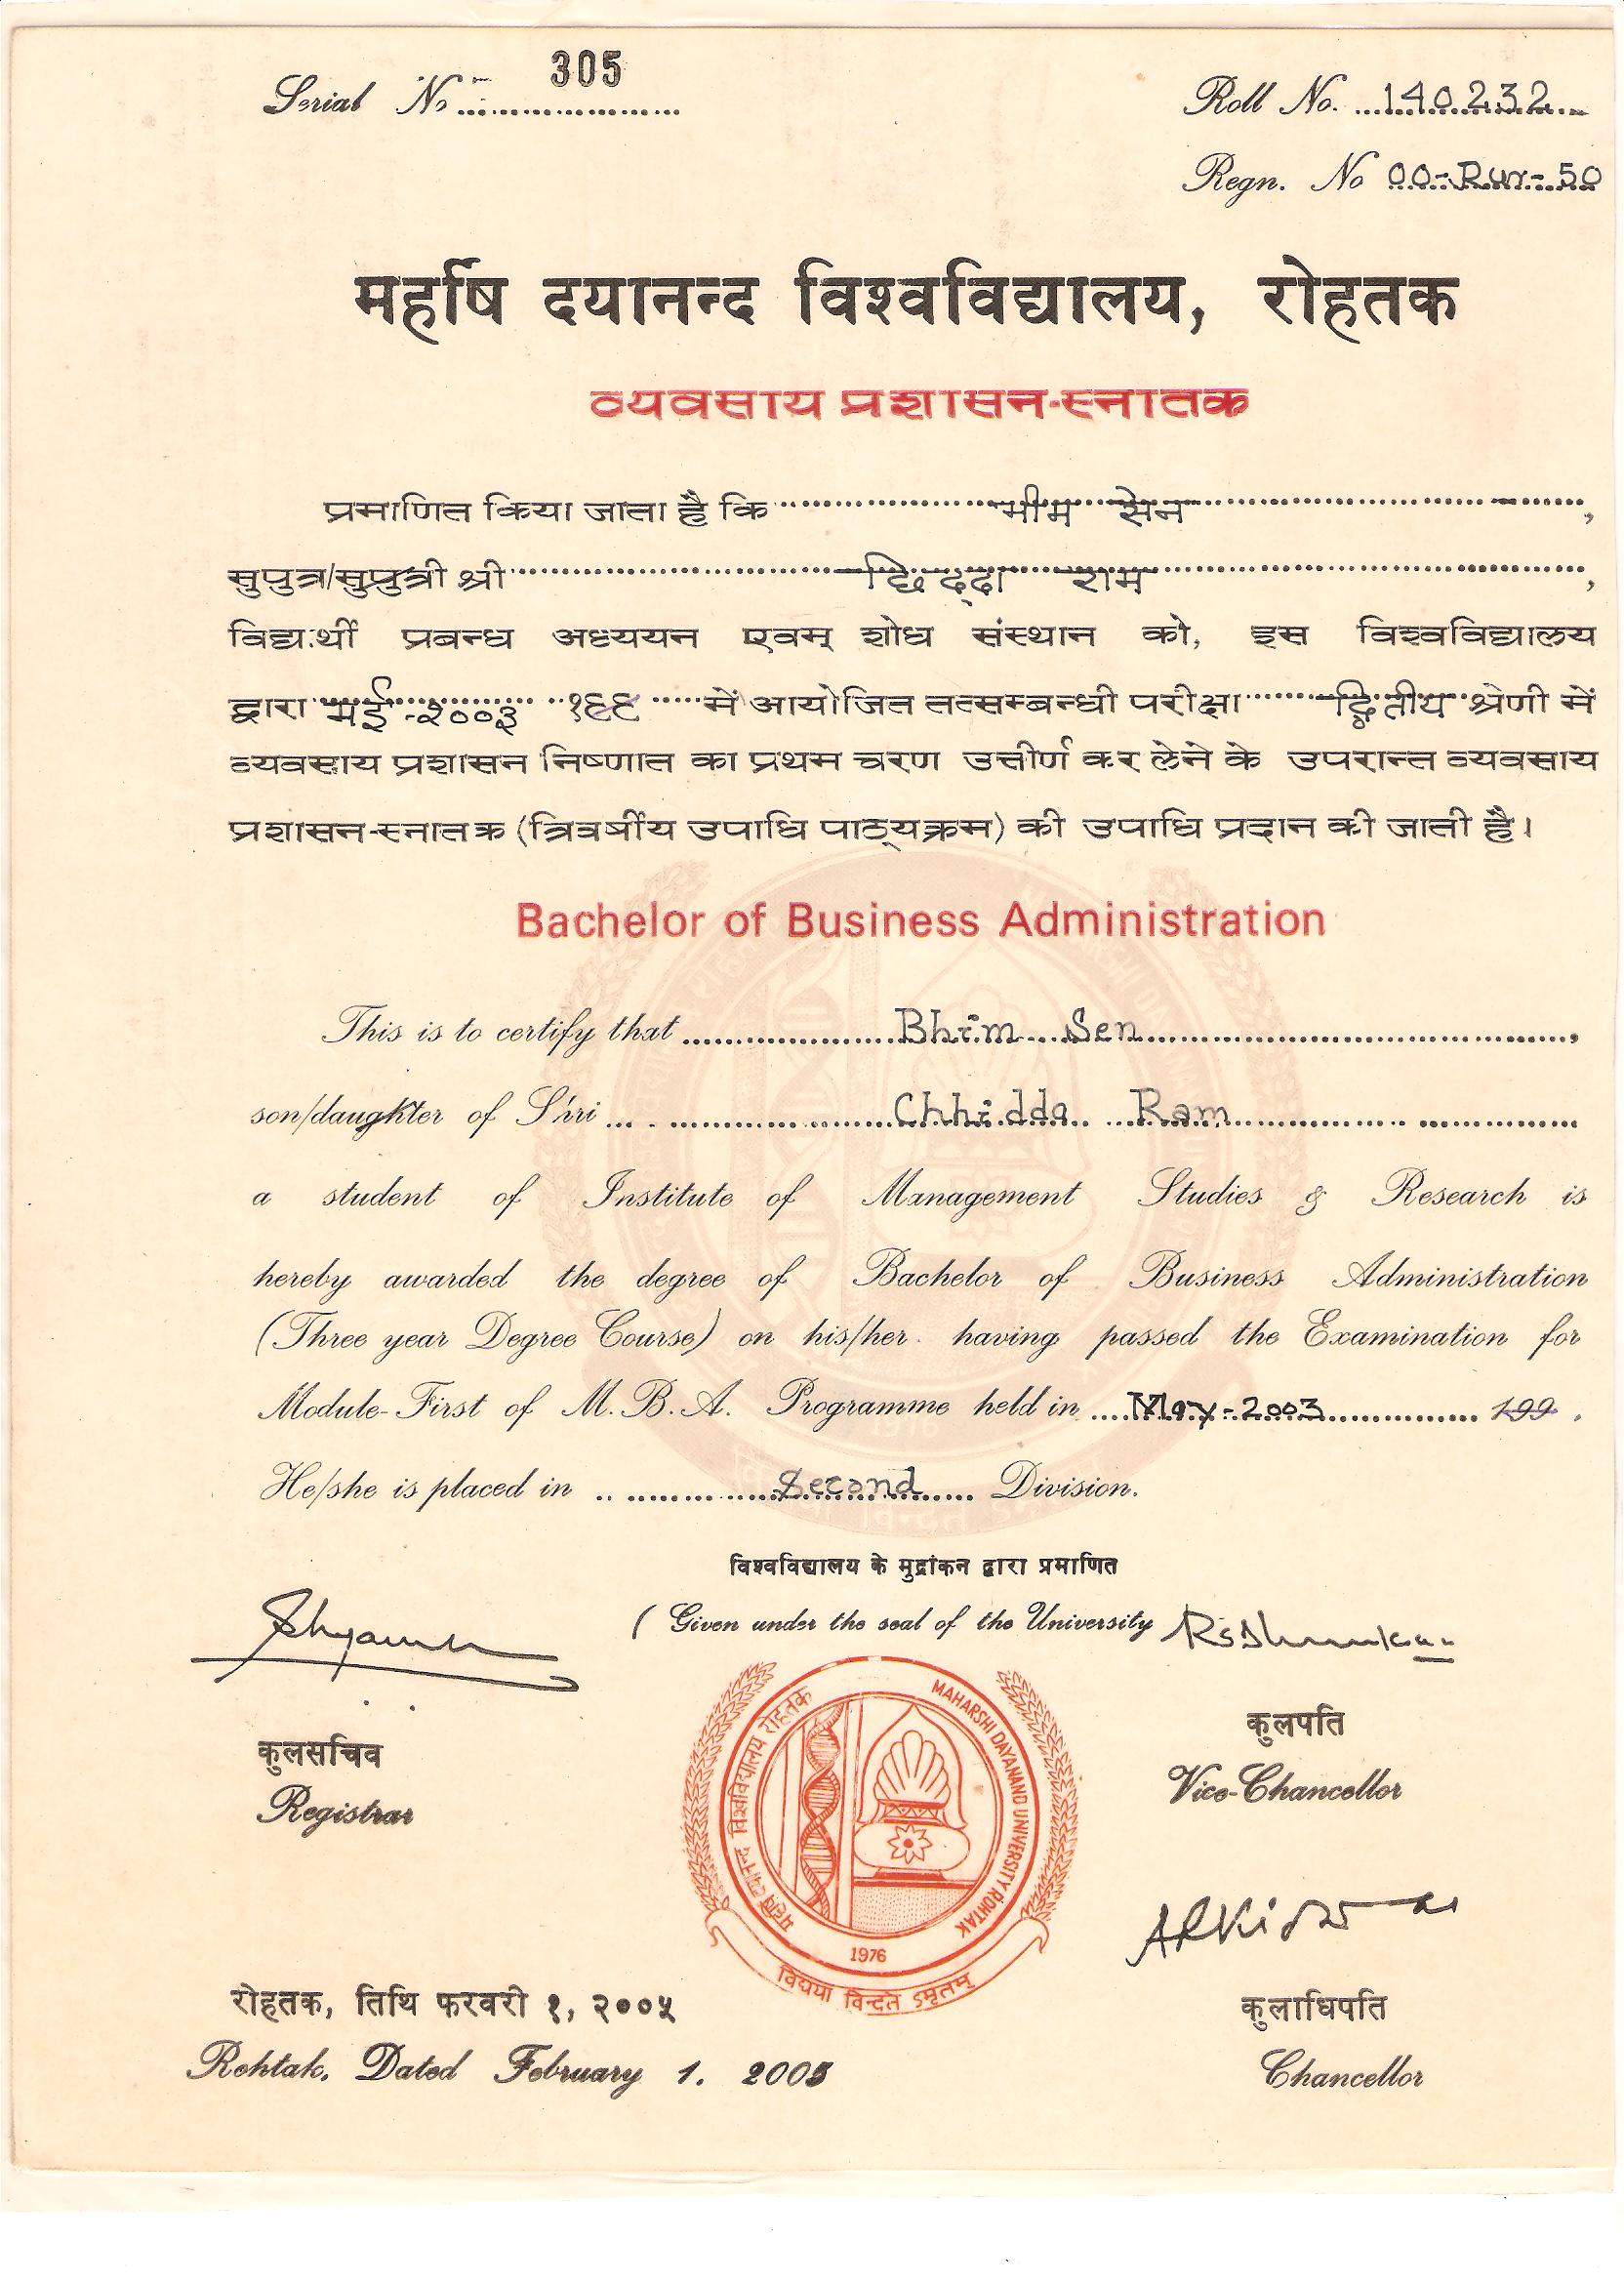 Serial No 305
Roll No. 140232
Regn. No 00-Rur-50
महर्षि दयानन्द विश्वविद्यालय, रोहतक
व्यवसाय प्रशासन-स्नातक
प्रमाणित किया जाता है कि भीम सेन,
सुपुत्र/सुपुत्री श्री छिद्दा राम,
विद्यार्थी प्रबन्ध अध्ययन एवम् शोध संस्थान को, इस विश्वविद्यालय
द्वारा मई-२००३ १९९ में आयोजित तत्सम्बन्धी परीक्षा द्वितीय श्रेणी में
व्यवसाय प्रशासन निष्णात का प्रथम चरण उत्तीर्ण कर लेने के उपरान्त व्यवसाय
प्रशासन-स्नातक (त्रिवर्षीय उपाधि पाठ्यक्रम) की उपाधि प्रदान की जाती है।
Bachelor of Business Administration
This is to certify that Bhim Sen,
son/daughter of Shri Chhidda Ram
a student of Institute of Management Studies & Research is
hereby awarded the degree of Bachelor of Business Administration
(Three year Degree Course) on his/her having passed the Examination for
Module-First of M. B. A. Programme held in May-2003 199.
He/she is placed in Second Division.
विश्वविद्यालय के मुद्रांकन द्वारा प्रमाणित
( Given under the seal of the University
कुलसचिव
Registrar
कुलपति
Vice-Chancellor
महर्षि दयानन्द विश्वविद्यालय रोहतक
MAHARSHI DAYANAND UNIVERSITY ROHTAK
1976
विद्यया विन्दते ऽमृतम्
रोहतक, तिथि फरवरी १, २००५
Rohtak, Dated February 1. 2005
कुलाधिपति
Chancellor